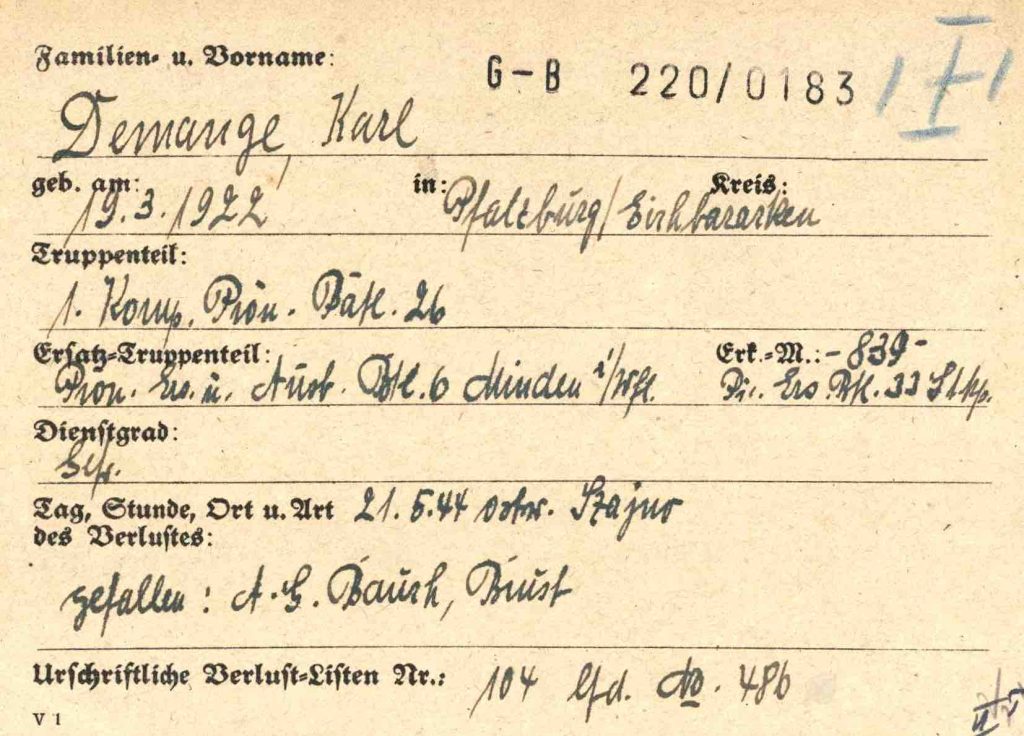 Familien- u. Vorname:
G-B 220/0183
Demange, Karl
geb. am: 19.3.1922 in: Pfalzburg/Eichbaracken Kreis:
Truppenteil:
1. Komp. Pion. Batl. 26
Ersatz-Truppenteil: Erk.-M.: -839-
Pion. Ers. u. Ausb. Btl. 6 Minden i/Wfl. Pi. Ers. Btl. 33 St.Kp.
Dienstgrad:
Gefr.
Tag, Stunde, Ort u. Art 21.5.44 ostw. Szajno
des Verlustes:
gefallen: A.G. Bauch, Brust
Urschriftliche Verlust-Listen Nr.: 104 lfd. No. 486
V 1